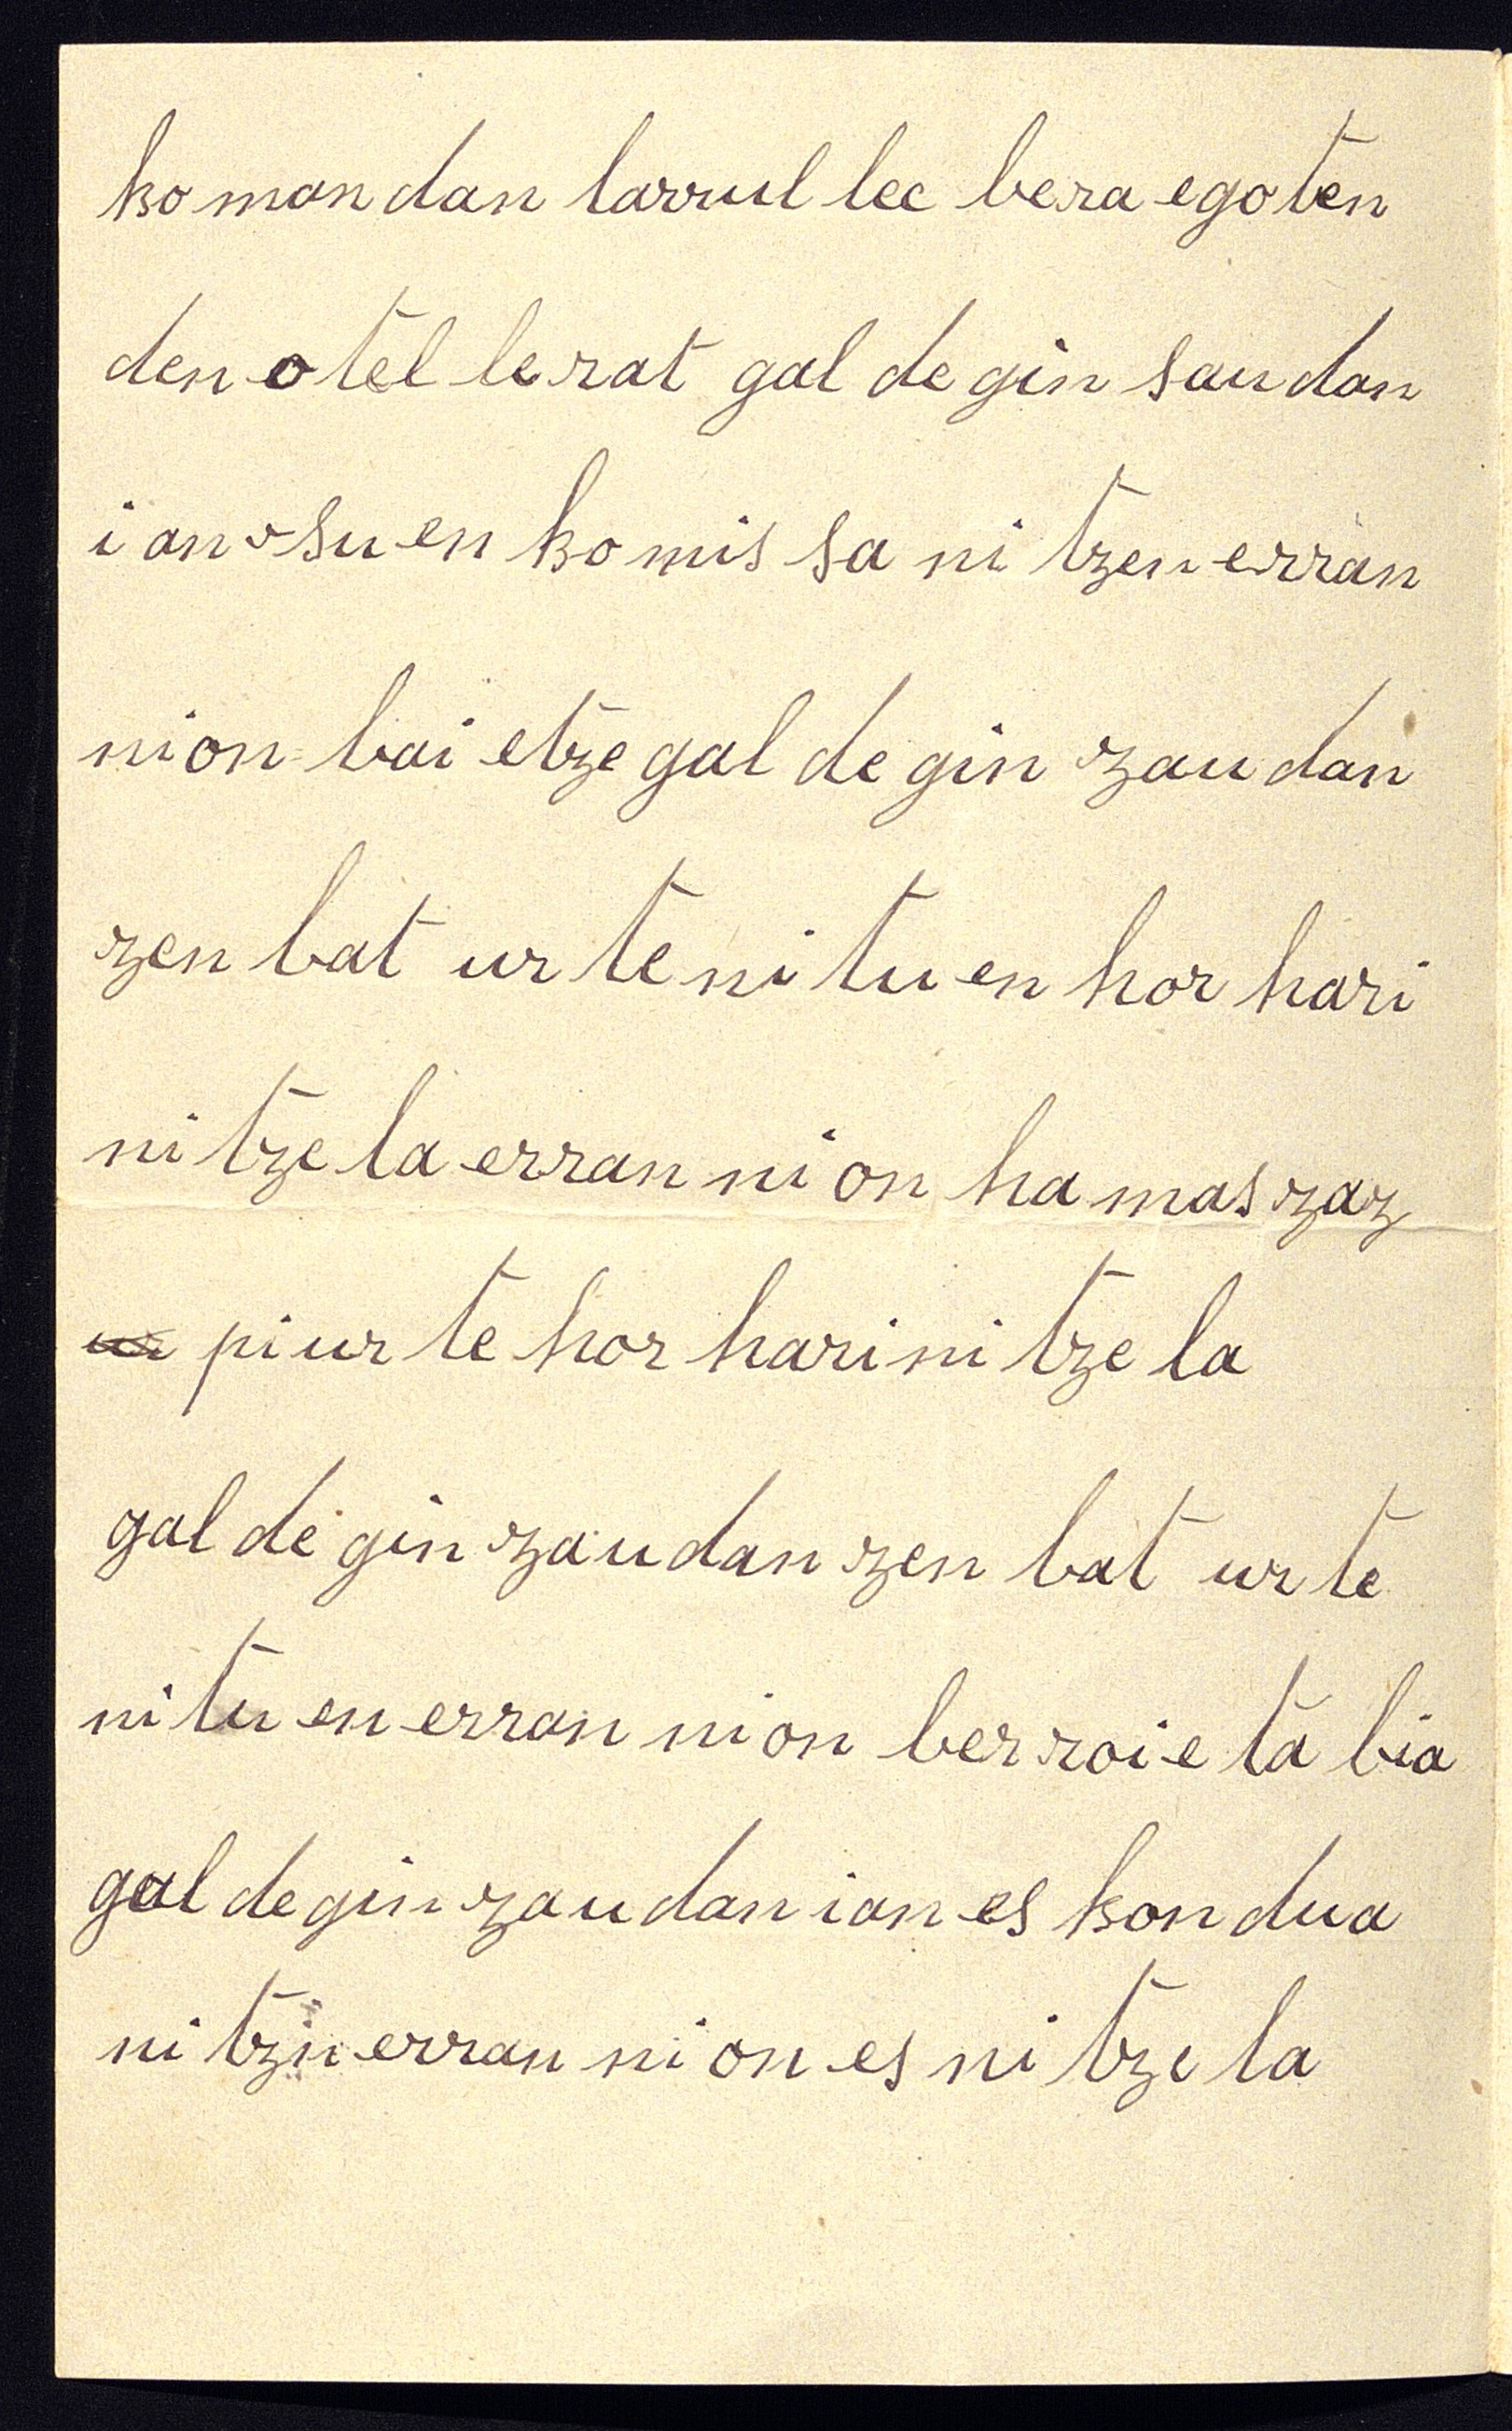 ko man dan larrul lec bera ego ten
den o tel le rat gal de gin sau dan
i an o su en ko mis sa ni tzen erran
nion bai etze gal de gin zau dan
zen bat ur te ni tu en hor hari
ni tze la erran ni on ha mas zaz
pi ur te hor hari ni tze la
gal de gin zau dan zen bat ur te
ni tu en erran ni on ber roi e ta bia
gal de gin zau dan ian es kon dua
ni tzin erran ni on es ni tze la